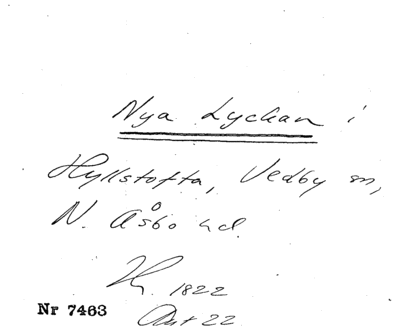 Nya Lyckan i
Hyllstofta, Vedby sn,
N. Åsbo hd.
1822
Nr 7463
22